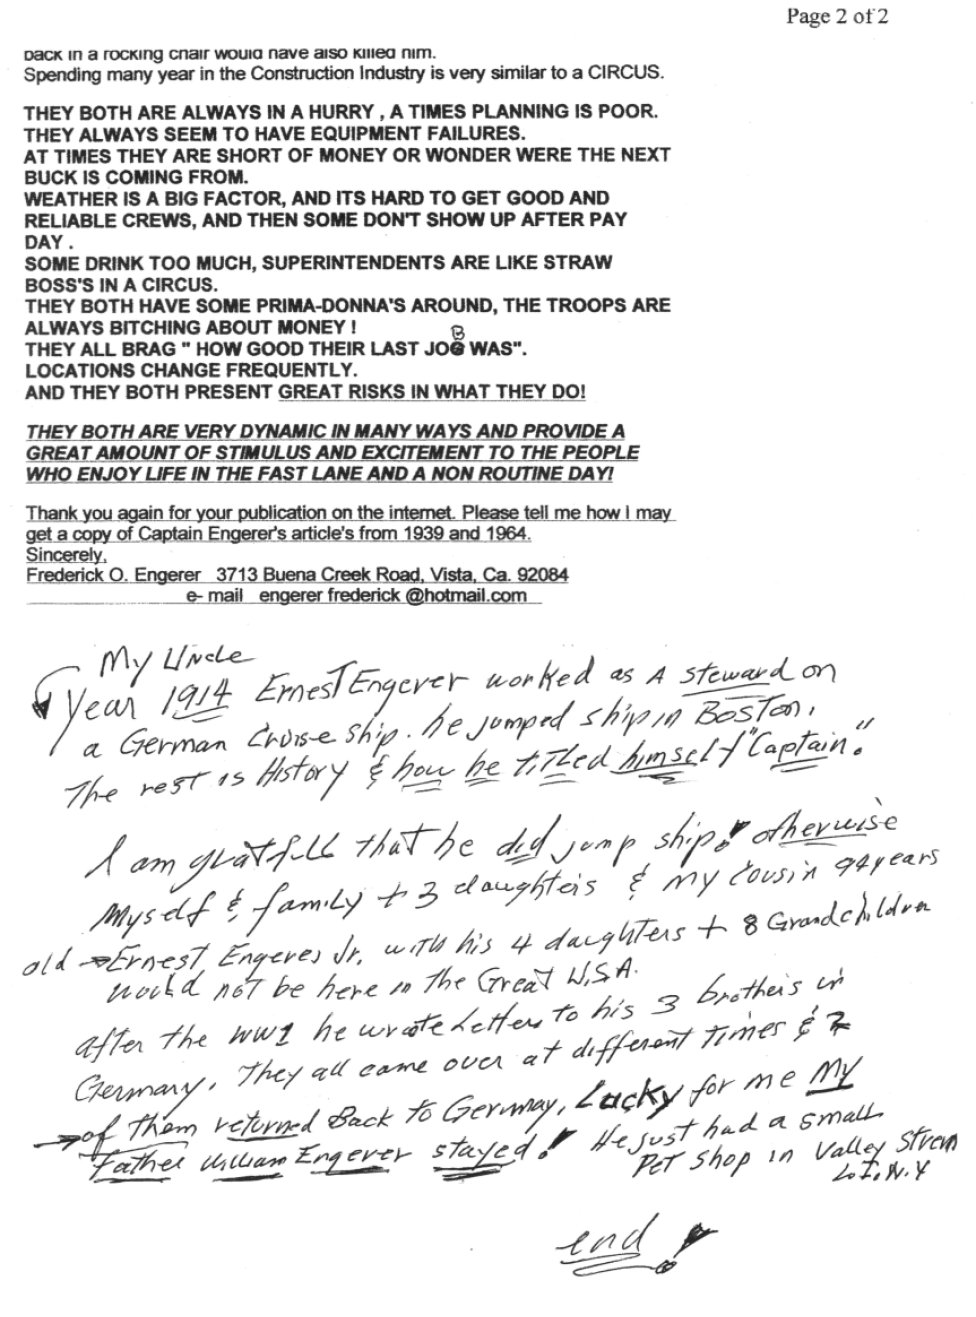 Page 2 of 2
back in a rocking chair would have also killed him.
Spending many year in the Construction Industry is very similar to a CIRCUS.
THEY BOTH ARE ALWAYS IN A HURRY , A TIMES PLANNING IS POOR.
THEY ALWAYS SEEM TO HAVE EQUIPMENT FAILURES.
AT TIMES THEY ARE SHORT OF MONEY OR WONDER WERE THE NEXT
BUCK IS COMING FROM.
WEATHER IS A BIG FACTOR, AND ITS HARD TO GET GOOD AND
RELIABLE CREWS, AND THEN SOME DON'T SHOW UP AFTER PAY
DAY .
SOME DRINK TOO MUCH, SUPERINTENDENTS ARE LIKE STRAW
BOSS'S IN A CIRCUS.
THEY BOTH HAVE SOME PRIMA-DONNA'S AROUND, THE TROOPS ARE
ALWAYS BITCHING ABOUT MONEY !
THEY ALL BRAG " HOW GOOD THEIR LAST JOB WAS".
LOCATIONS CHANGE FREQUENTLY.
AND THEY BOTH PRESENT GREAT RISKS IN WHAT THEY DO!
THEY BOTH ARE VERY DYNAMIC IN MANY WAYS AND PROVIDE A
GREAT AMOUNT OF STIMULUS AND EXCITEMENT TO THE PEOPLE
WHO ENJOY LIFE IN THE FAST LANE AND A NON ROUTINE DAY!
Thank you again for your publication on the internet. Please tell me how I may
get a copy of Captain Engerer's article's from 1939 and 1964.
Sincerely,
Frederick O. Engerer 3713 Buena Creek Road, Vista, Ca. 92084
e- mail engerer frederick @hotmail.com
My Uncle
Year 1914 Ernest Engerer worked as A steward on
a German Cruise ship. he jumped ship in Boston,
The rest is History & how he titled himself "Captain."
I am gratefull that he did jump ship! otherwise
Myself & family + 3 daughters & my Cousin 94 years
old → Ernest Engerer Jr. with his 4 daughters + 8 Grandchildren
would not be here in the Great U.S.A.
after the WW1 he wrote Letters to his 3 brothers in
Germany. They all came over at different times & 2
→ of them returned Back to Germany, Lucky for me My
Father William Engerer stayed! He just had a small
Pet Shop in Valley Stream
L.I. N.Y
end!